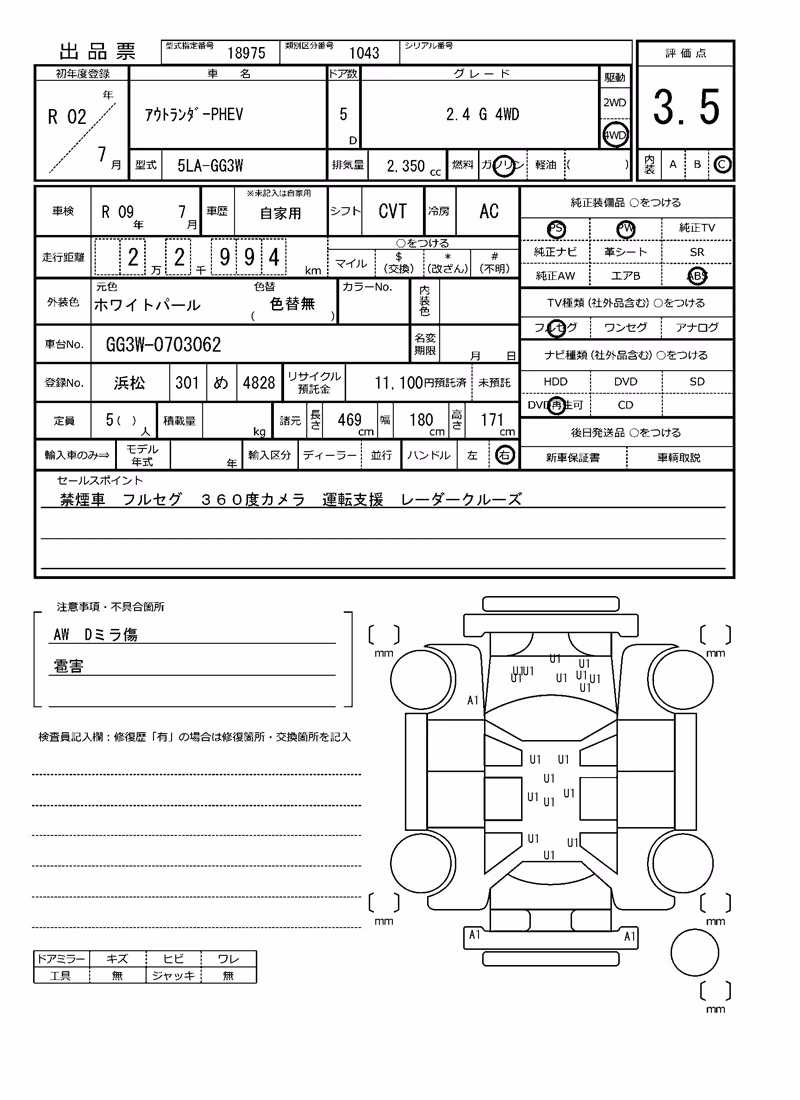 出品票
型式指定番号 18975 類別区分番号 1043 シリアル番号
評価点
3.5
内装 A B C
初年度登録 車名 ドア数 グレード 駆動
R 02 年 7 月
ｱｳﾄﾗﾝﾀﾞ-PHEV 5 D 2.4 G 4WD
2WD
4WD
型式 5LA-GG3W 排気量 2,350 cc 燃料 ガソリン 軽油 ( )
車検 R 09 年 7 月 車歴 ※未記入は自家用 自家用 シフト CVT 冷房 AC
走行距離 2 万 2 千 9 9 4 km
○をつける
マイル $ (交換) * (改ざん) # (不明)
外装色 元色 ホワイトパール 色替 ( 色替無 ) カラーNo. 内装色
車台No. GG3W-0703062 名変期限 月 日
登録No. 浜松 301 め 4828 リサイクル預託金 11,100円預託済 未預託
定員 5( ) 人 積載量 kg 諸元 長さ 469 cm 幅 180 cm 高さ 171 cm
輸入車のみ⇒ モデル年式 年 輸入区分 ディーラー 並行 ハンドル 左 右
純正装備品 ○をつける
PS PW 純正TV
純正ナビ 革シート SR
純正AW エアB ABS
TV種類 (社外品含む) ○をつける
フルセグ ワンセグ アナログ
ナビ種類 (社外品含む) ○をつける
HDD DVD SD
DVD再生可 CD
後日発送品 ○をつける
新車保証書 車輌取説
セールスポイント
禁煙車 フルセグ ３６０度カメラ 運転支援 レーダークルーズ
注意事項・不具合箇所
AW Dミラ傷
雹害
検査員記入欄：修復歴「有」の場合は修復箇所・交換箇所を記入
ドアミラー キズ ヒビ ワレ
工具 無 ジャッキ 無
mm
mm
U1
U1
U1U1
U1
U1
U1
U1
U1
A1
U1
U1
U1
U1
U1
U1
U1
U1
U1
mm
mm
A1
A1
mm